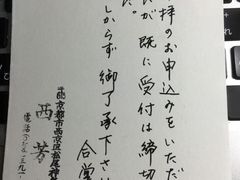 拝のお申込みをいただ
が既に受付は締切
た。
しからず御了承下さ
合掌
京都市西京区松尾神
西芳
電話